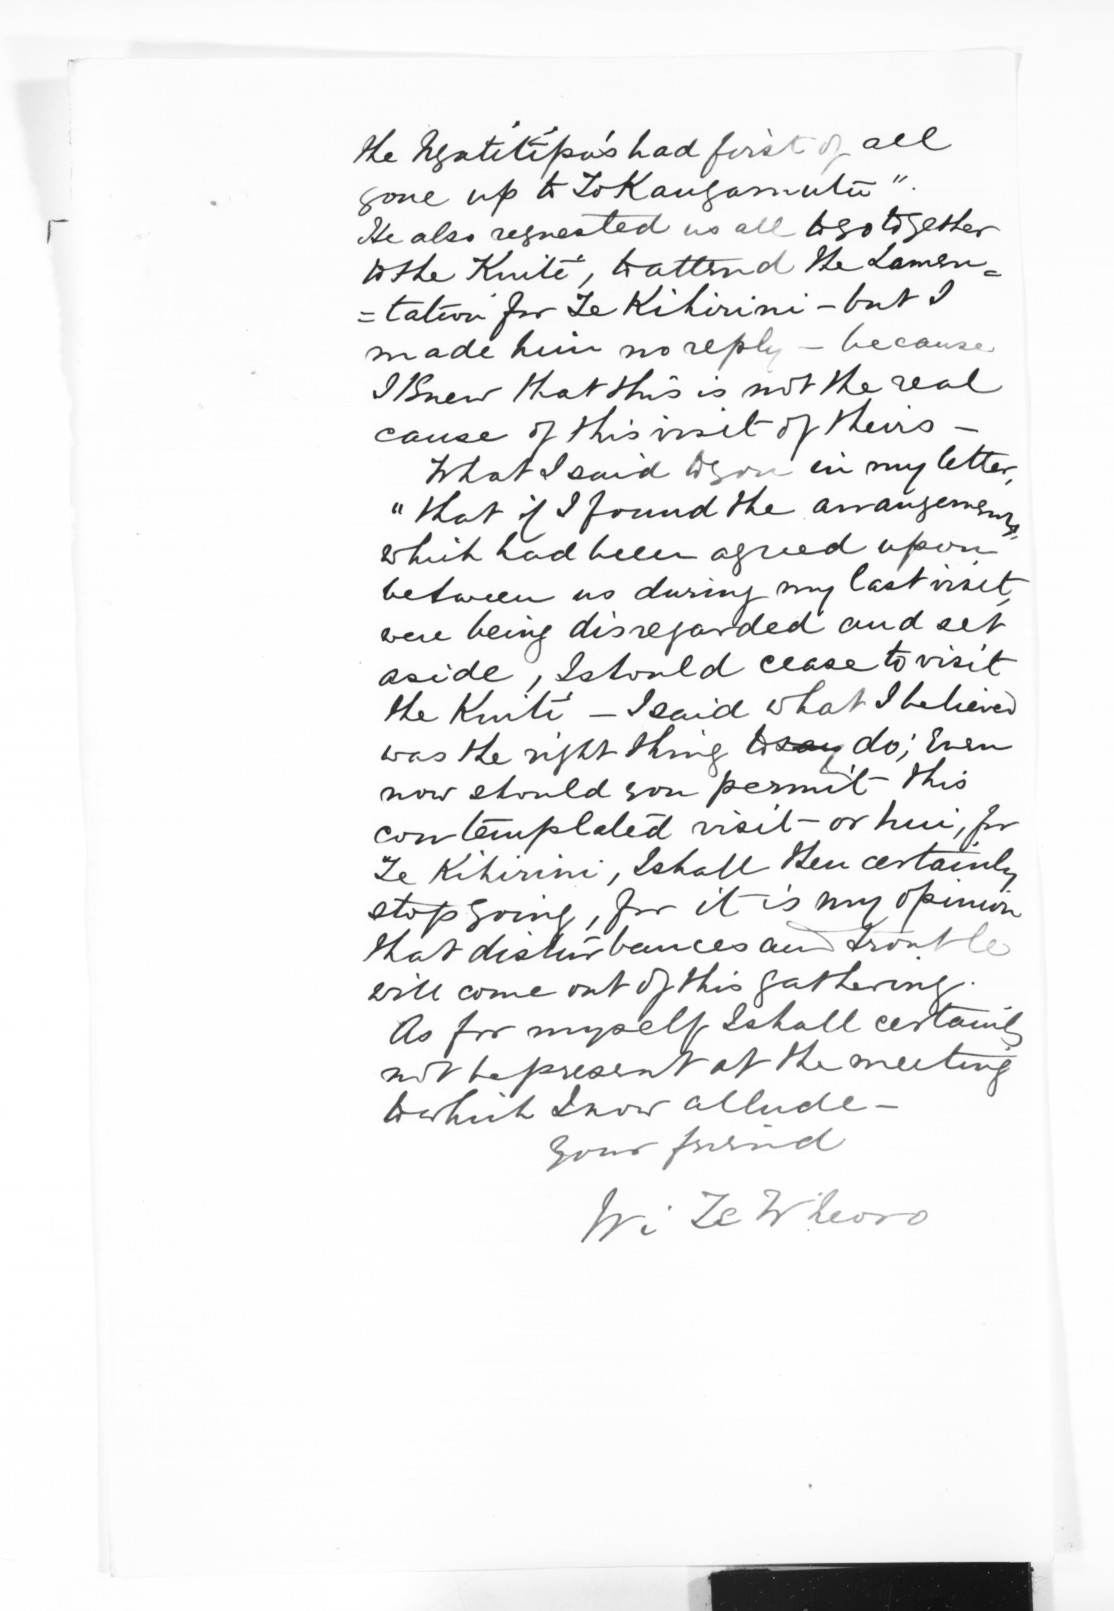 the Ngatitipa's had first of all
gone up to Te Kaugamutu".
He also requested us all to go together
to the Kuiti, to attend the Lamen=
=tation for Te Kihirini - but I
made him no reply - because
I Knew that this is not the real
cause of this visit of theirs -
What I said to you in my letter,
"that if I found the arrangements,
which had been agreed upon
between us during my last visit,
were being disregarded and set
aside, I should cease to visit
the Kuiti - I said what I believed
was the right thing to say do; Even
now should you permit this
contemplated visit - or hui, for
Te Kihirini, I shall then certainly
stop going, for it is my opinion
that disturbances and trouble
will come out of this gathering.
As for myself I shall certainly
not be present at the meeting
to which I now allude -
Your friend
Wi Te Wheoro